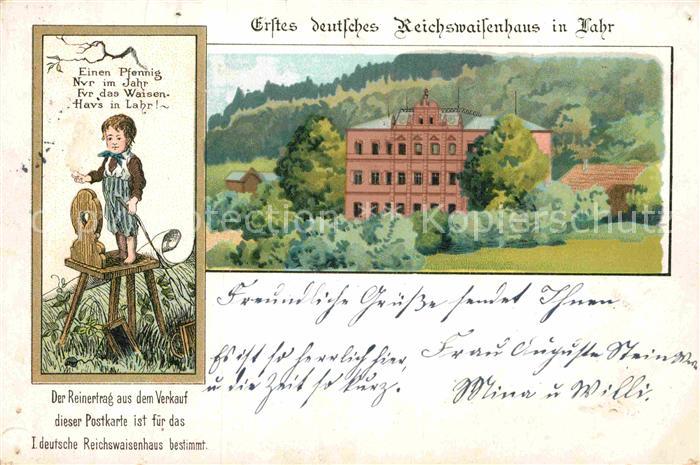 Erstes deutsches Reichswaisenhaus in Lahr
Einen Pfennig
Nvr im Jahr
Fvr das Waisen-
Havs in Lahr!
Der Reinertrag aus dem Verkauf
dieser Postkarte ist für das
I. deutsche Reichswaisenhaus bestimmt.
Freundliche Grüße sendet Ihnen
Es ist so herrlich hier,
u die Zeit so kurz.
Frau Auguste Stein
Mina u Willi.
Kopierschutz